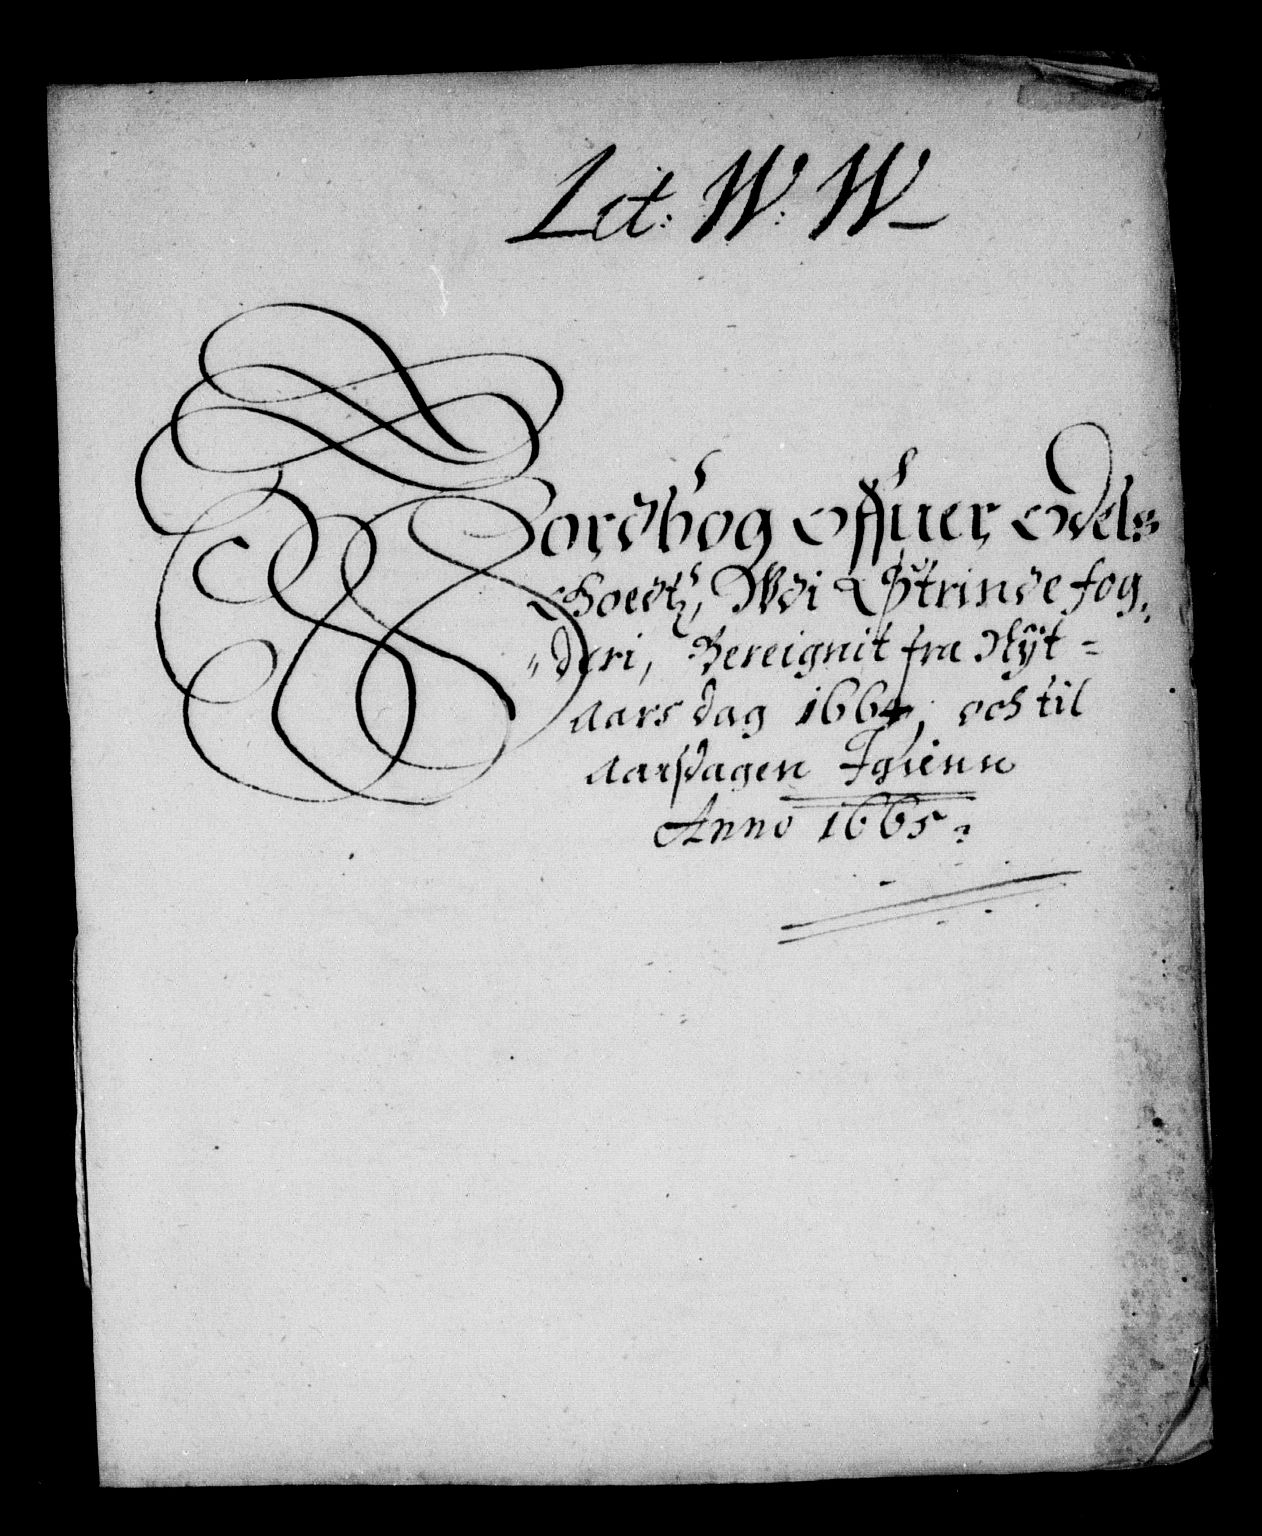 Lit: W: W
Jordbog offuer Odels
Goedtz, Wdi Strinde fog,
„deri, Bereignit fra Nyt=
aars dag 1664, och til
aarsdagen Igienn
Anno 1665.